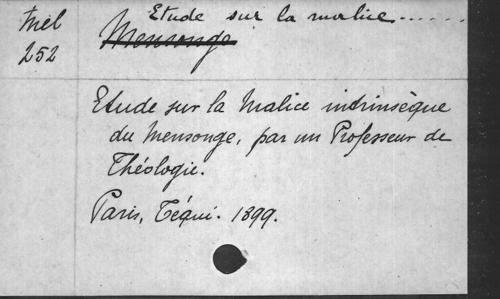 Etude sur la malice......
Mél
Mensonge
252
Etude sur la Malice intrinsèque
du Mensonge, par un Professeur de
Théologie.
Paris, Téqui. 1899.